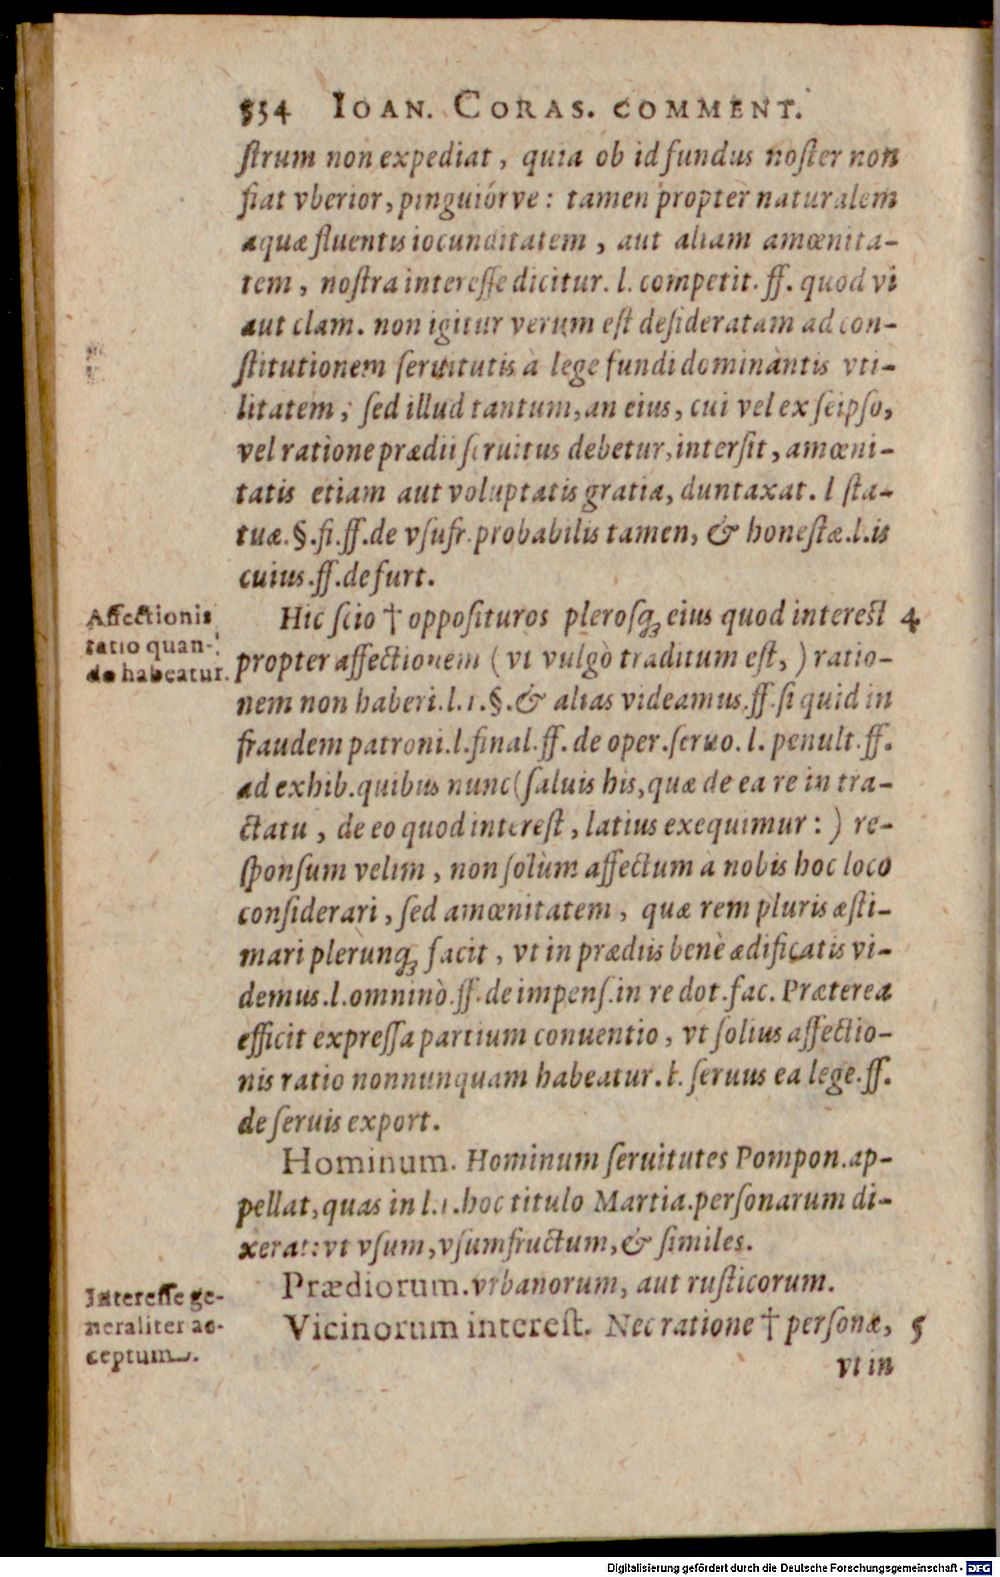 554 IOAN. CORAS. COMMENT.
ſtrum non expediat, quia ob id fundus noſter non
fiat vberior, pinguiórve: tamen propter naturalem
aquæ fluentis iocunditatem, aut aliam amœnita-
tem, noſtra intereſſe dicitur. l. competit. ff. quod vi
aut clam. non igitur verum eſt deſideratam ad con-
ſtitutionem ſeruitutis à lege fundi dominàntis vti-
litatem, ſed illud tantum, an eius, cui vel ex ſeipſo,
vel ratione prædii ſeruitus debetur, interſit, amœni-
tatis etiam aut voluptatis gratia, duntaxat. l ſta-
tuæ. §. fi. ff. de vſufr. probabilis tamen, & honeſtæ. l. is
cuius. ff. de furt.
Affectionis
ratio quan-
do habeatur.
Hic ſcio † oppoſituros pleroſq; eius quod intereſt 4
propter affectionem (vt vulgò traditum eſt,) ratio-
nem non haberi. l. 1. §. & alias videamus. ff. ſi quid in
fraudem patroni. l. final. ff. de oper. ſeruo. l. penult. ff.
ad exhib. quibus nunc (ſaluis his, quæ de ea re in tra-
ctatu, de eo quod intereſt, latius exequimur:) re-
ſponſum velim, non ſolùm affectum à nobis hoc loco
conſiderari, ſed amœnitatem, quæ rem pluris æſti-
mari plerunq; facit, vt in prædiis benè ædificatis vi-
demus. l. omninò. ff. de impenſ. in re dot. fac. Præterea
efficit expreſſa partium conuentio, vt ſolius affectio-
nis ratio nonnunquam habeatur. l. ſeruus ea lege. ff.
de ſeruis export.
Hominum. Hominum ſeruitutes Pompon. ap-
pellat, quas in l. 1. hoc titulo Martia. perſonarum di-
xerat: vt vſum, vſumfructum, & ſimiles.
Prædiorum. vrbanorum, aut ruſticorum.
Intereſſe ge-
neraliter ac-
ceptum.
Vicinorum intereſt. Nec ratione † perſonæ, 5
vt in
Digitalisierung gefördert durch die Deutsche Forschungsgemeinschaft - DFG